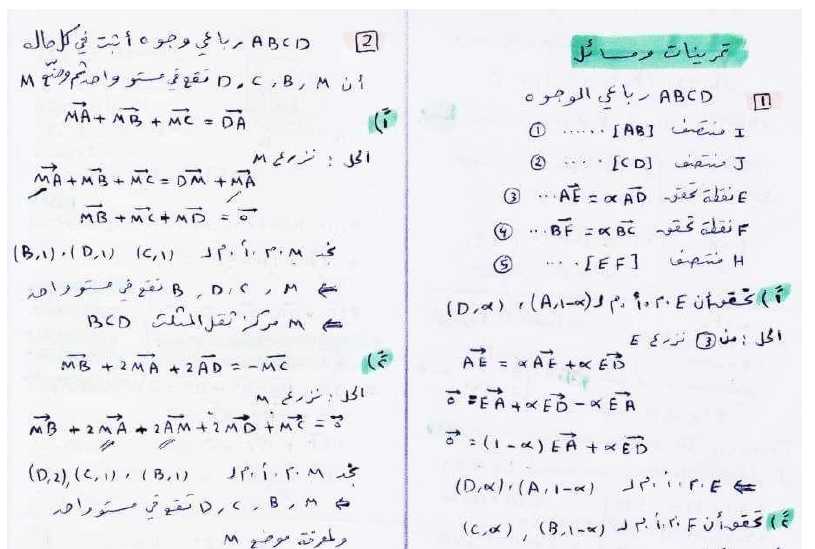 تمرينات ومسائل
1 ABCD رباعي الوجوه
I منتصف [AB] ...... ①
J منتصف [CD] .... ②
E نقطة تحقق AE→ = α AD→ ... ③
F نقطة تحقق BF→ = α BC→ ... ④
H منتصف [EF] .... ⑤
1) تحقق أن E م.أ.م لـ (A,1-α) ، (D,α)
الحل : من ③ نزرع E
AE→ = α AE→ + α ED→
0→ = EA→ + α ED→ - α EA→
0→ = (1-α) EA→ + α ED→
⇐ E م.أ.م لـ (A,1-α) ، (D,α)
2) تحقق أن F م.أ.م لـ (B,1-α) , (C,α)
2 ABCD رباعي وجوه أثبت في كل حالة
أن M , B , C , D تقع في مستو واحد ثم وضّع M
1)
MA→ + MB→ + MC→ = DA→
الحل : نزرع M
MA→ + MB→ + MC→ = DM→ + MA→
MB→ + MC→ + MD→ = 0→
نجد M م.أ.م لـ (C,1) (D,1) ، (B,1)
⇐ M , C , D , B تقع في مستو واحد
⇐ M مركز ثقل المثلث BCD
2)
MB→ + 2MA→ + 2AD→ = -MC→
الحل : نزرع M
MB→ + 2MA→ + 2AM→ + 2MD→ + MC→ = 0→
نجد M م.أ.م لـ (B,1) ، (C,1) , (D,2)
⇐ M , B , C , D تقع في مستو واحد
ولمعرفة موضع M